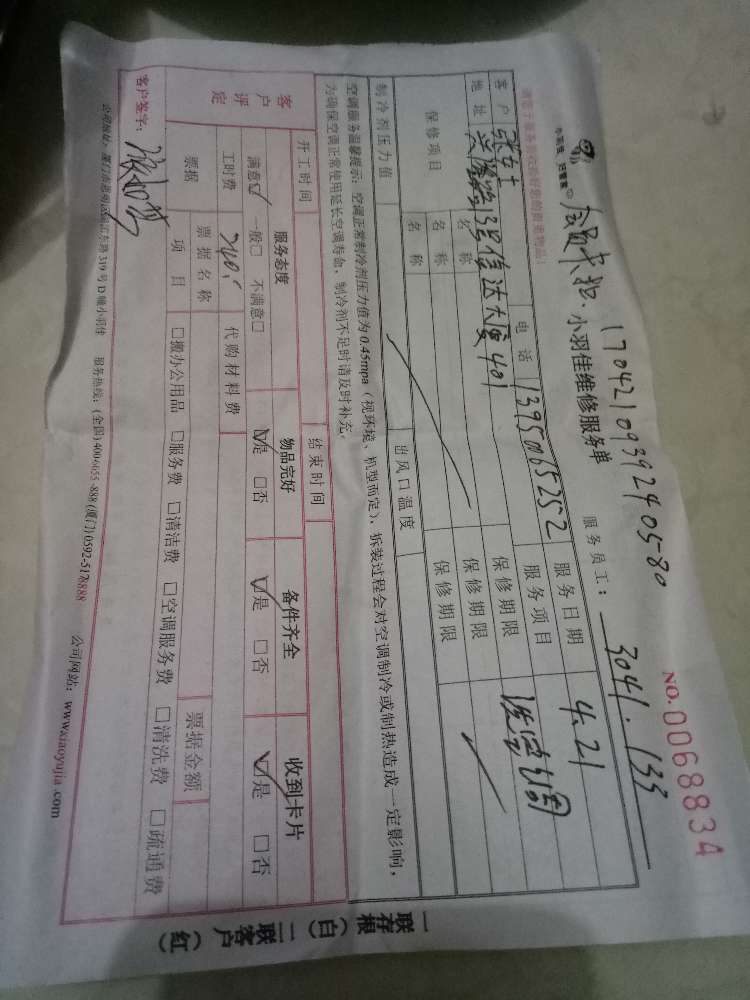 会员卡扣. 1704210939240580
NO.0068834
小羽佳 记懂家
小羽佳维修服务单
服务员工: 3041.133
客户 张女士 电话 13950065252 服务日期 4.21
地址 号信达大厦401 服务项目 洗空调
保修项目 名称 保修期限
名称 保修期限
名称 保修期限
制冷剂压力值 出风口温度
空调服务温馨提示：空调正常制冷剂压力值为0.45mpa（视环境、机型而定），拆装过程会对空调制冷或制热造成一定影响，
为确保空调正常使用延长空调寿命，制冷剂不足时请及时补充。
开工时间 结束时间
客户评定 服务态度 物品完好 备件齐全 收到卡片
满意☑ 一般□ 不满意□ ☑是 □否 ☑是 □否 ☑是 □否
工时费 240. 代购材料费
票据 票据名称 票据金额
项目 □搬办公用品 □服务费 □清洁费 □空调服务费 □清洗费 □疏通费
客户签字：
公司地址：厦门市思明区 江东路319号D幢小羽佳 服务热线：(全国)400-6655-888 (厦门)0592-5178888 公司网站：www.xiaoyujia.com
一联存根（白） 二联客户（红）